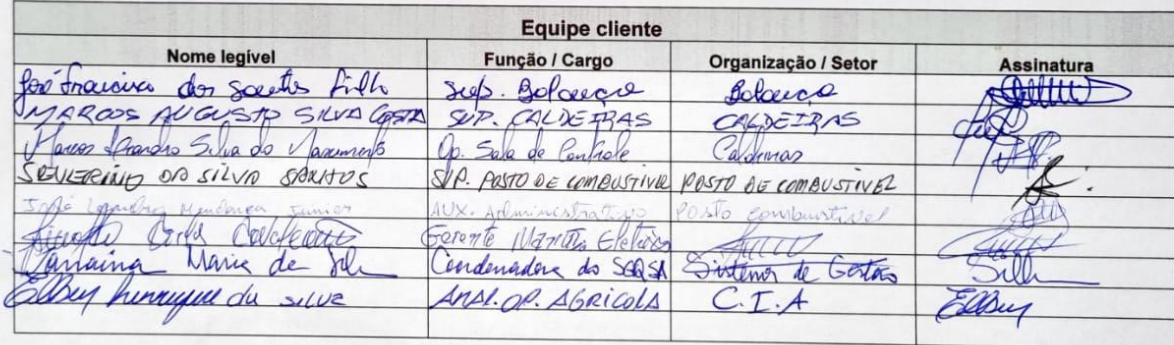 Equipe cliente
Nome legível Função / Cargo Organização / Setor Assinatura
José Francisco dos Santos Filho Sup. Balança Balança
MARCOS AUGUSTO SILVA COSTA SUP. CALDEIRAS CALDEIRAS
Marcos Leandro Silva do Nascimento Op. Sala de Controle Caldeiras
SEVERINO DA SILVA SANTOS SUP. POSTO DE COMBUSTIVEL POSTO DE COMBUSTIVEL
José Mendonça Junior AUX. Administrativo Posto combustivel
Cavalcanti Gerente
Janaina Maria de Coordenadora do SGQSA Sistema de Gestão
Elbey henrique da silva ANAL. OP. AGRICOLA C.I.A Elbey